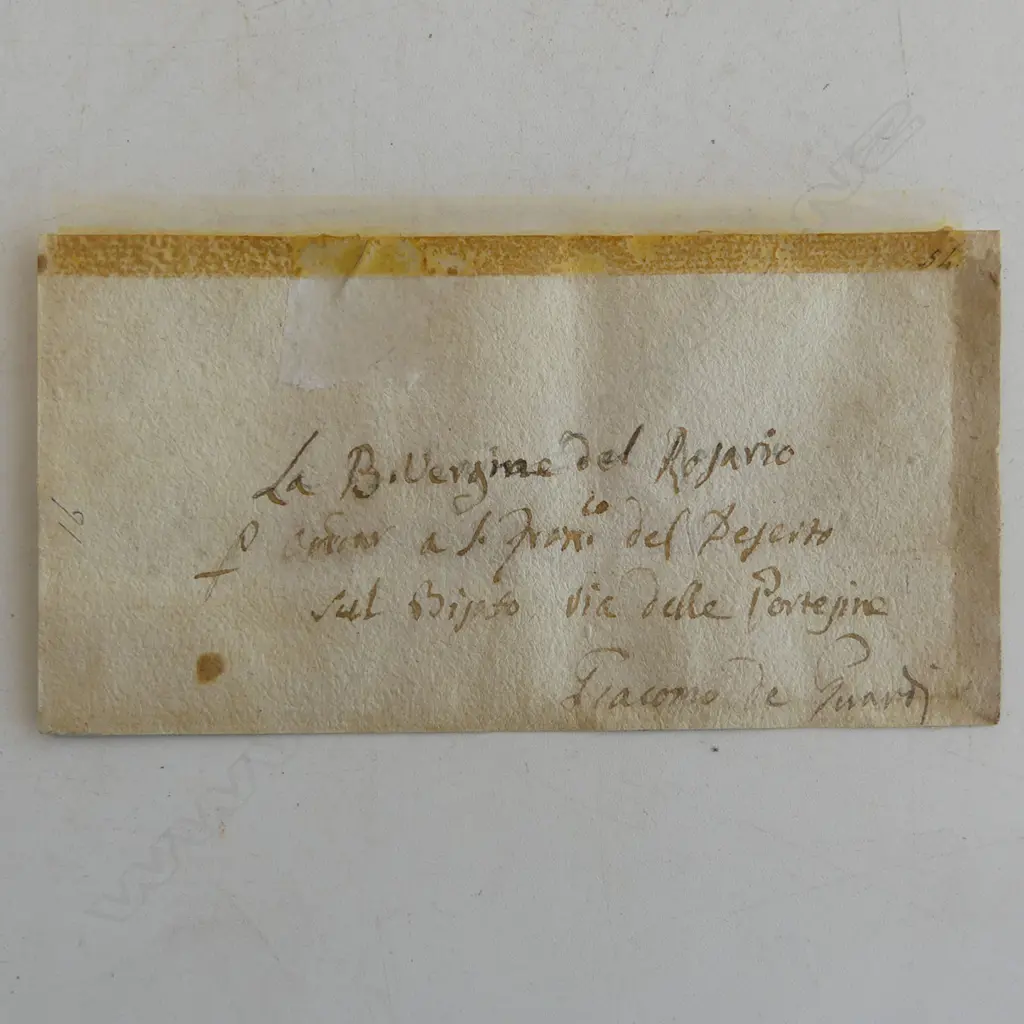 51
La B. Vergine del Rosario
P andar a S. Fran.co del Deserto
sul
via delle Portesine
Giacomo de Guardi
16